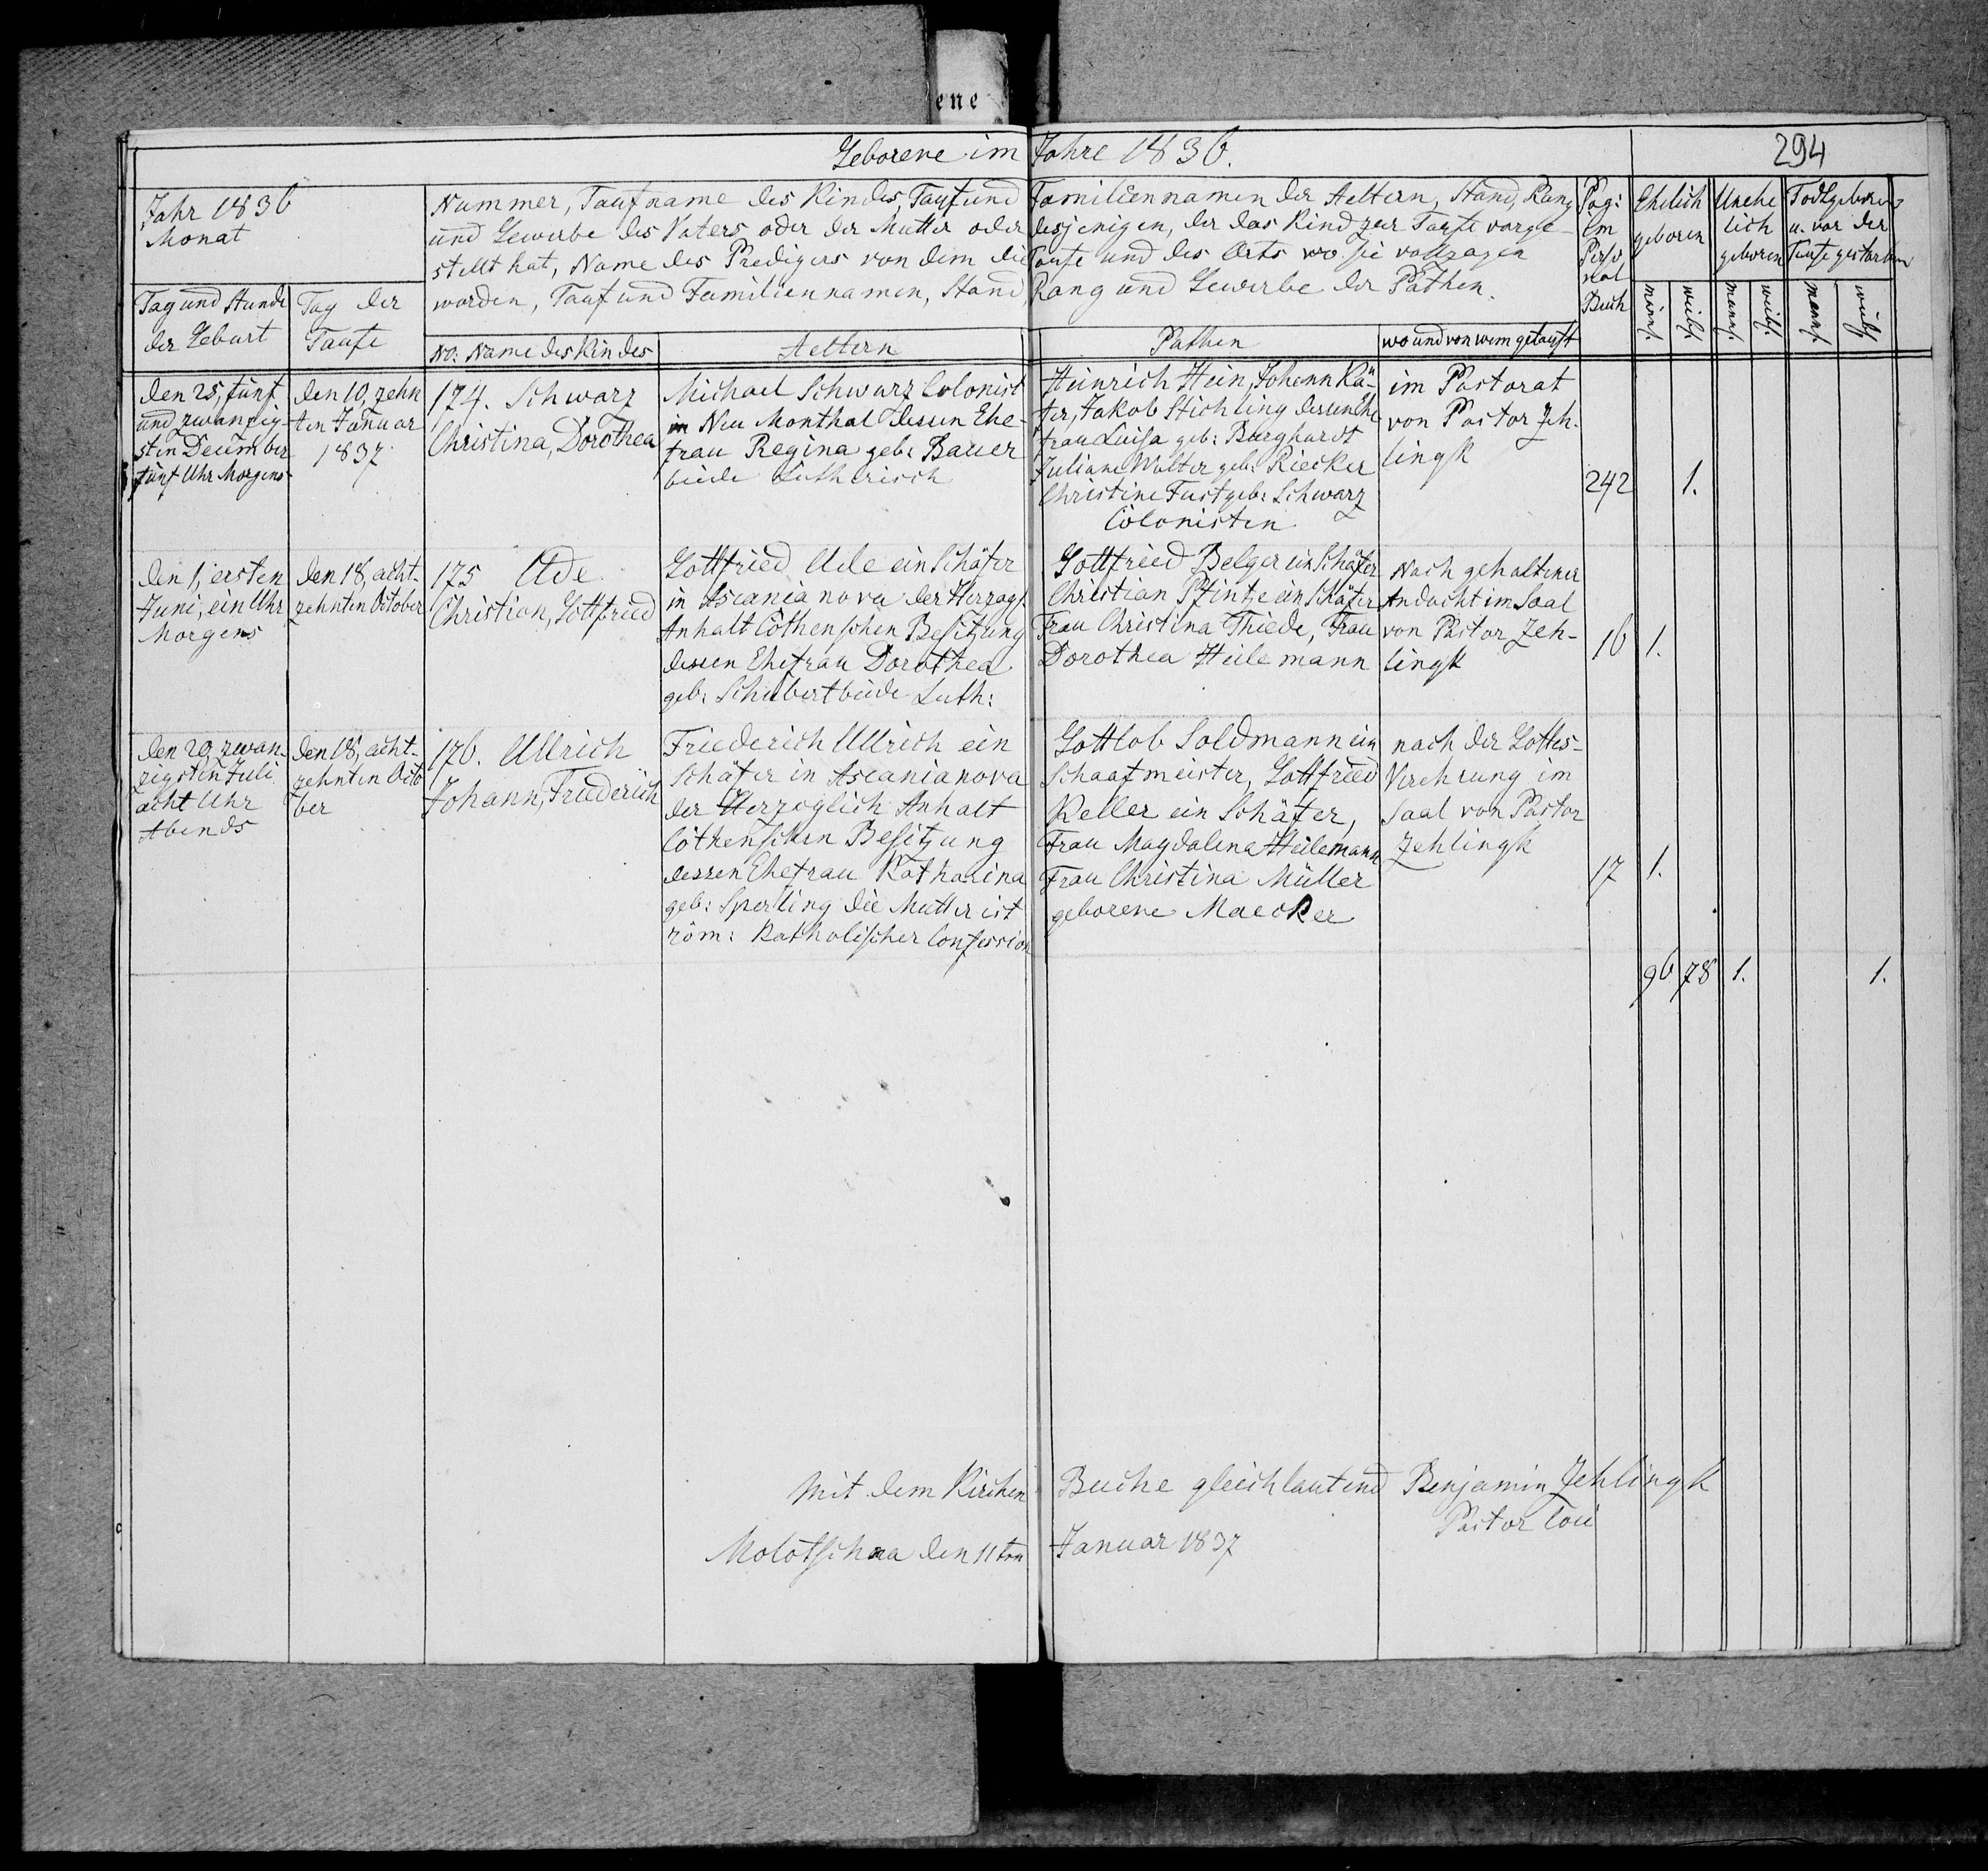 ene
Geborene im Jahre 1836.
294
Jahr 1836
Monat
Tag und Stunde
der Geburt
Tag der
Taufe
Nummer, Taufname des Kindes, Tauf und Familiennamen der Aeltern, Stand, Rang
und Gewerbe des Vaters oder der Mutter oder desjenigen, der das Kind zur Taufe vorge-
stellt hat, Name des Predigers von dem die Taufe und des Orts wo sie vollzogen
worden, Tauf und Familiennamen, Stand Rang und Gewerbe der Pathen.
No: Name des Kindes
Aeltern
Pathen
wo und von wem getauft
Pag:
im
Perso
nal
Buch
Ehelich
geboren
Unehe
lich
geboren
Todtgeborene
u. vor der
Taufe gestorben
männl.
weibl.
männl.
weibl.
männl.
weibl.
den 25, fünf
und zwanzig-
sten December
fünf Uhr Morgens
den 10, zehn
ten Januar
1837
174. Schwarz
Christina, Dorothea
Michael Schwarz Colonist
in Neu Monthal dessen Ehe-
frau Regina geb: Bauer
beide Lutherisch
Heinrich Hein, Johann Kä-
ter, Jakob Stichling dessen Ehe
frau Luisa geb: Burghardt
Juliane Walter geb: Riecker
Christine Fust geb: Schwarz
Colonisten
im Pastorat
von Pastor Zeh-
lingk
242
1.
den 1, ersten
Juni, ein Uhr
Morgens
den 18, acht-
zehnten October
175 Ude
Christian, Gottfried
Gottfried Ude ein Schäfer
in Ascania nova der Herzogl.
Anhalt Cöthenschen Besitzung
dessen Ehefrau Dorothea
geb: Schubert beide Luth:
Gottfried Belger ein Schäfer
Christian Pfintze ein Schäfer
Frau Christina Thiede, Frau
Dorothea Heilemann
Nach gehaltener
Andacht im Saal
von Pastor Zeh-
lingk
16
1.
den 20, zwan-
zigsten Juli
acht Uhr
Abends
den 18, acht-
zehnten Octo
ber
176. Ullrich
Johann, Friederich
Friederich Ullrich ein
Schäfer in Ascania nova
der Herzoglich Anhalt
Cöthenschen Besitzung
dessen Ehefrau Katharina
geb: Sperling die Mutter ist
röm: Katholischer Confession
Gottlob Soldmann ein
Schaafmeister, Gottfried
Keller ein Schäfer,
Frau Magdalena Heilemann
Frau Christina Müller
geborene Maecker
nach der Gottes-
Verehrung im
Saal von Pastor
Zehlingk
17
1.
96
78
1.
1.
Mit dem Kirchen Buche gleichlautend Benjamin Zehlingk
Pastor Coll
Molotschna den 11ten Januar 1837